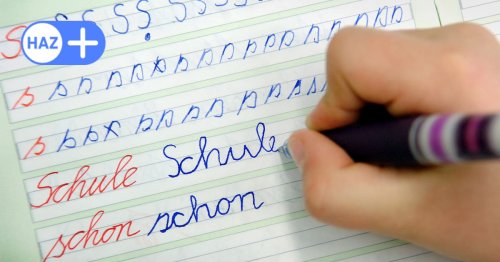 S S S S S S S S S S S S
HAZ +
s s s s x s s s s s s s s s s s s
s s s x s s s s s s s s s
Schule Schule
schon schon